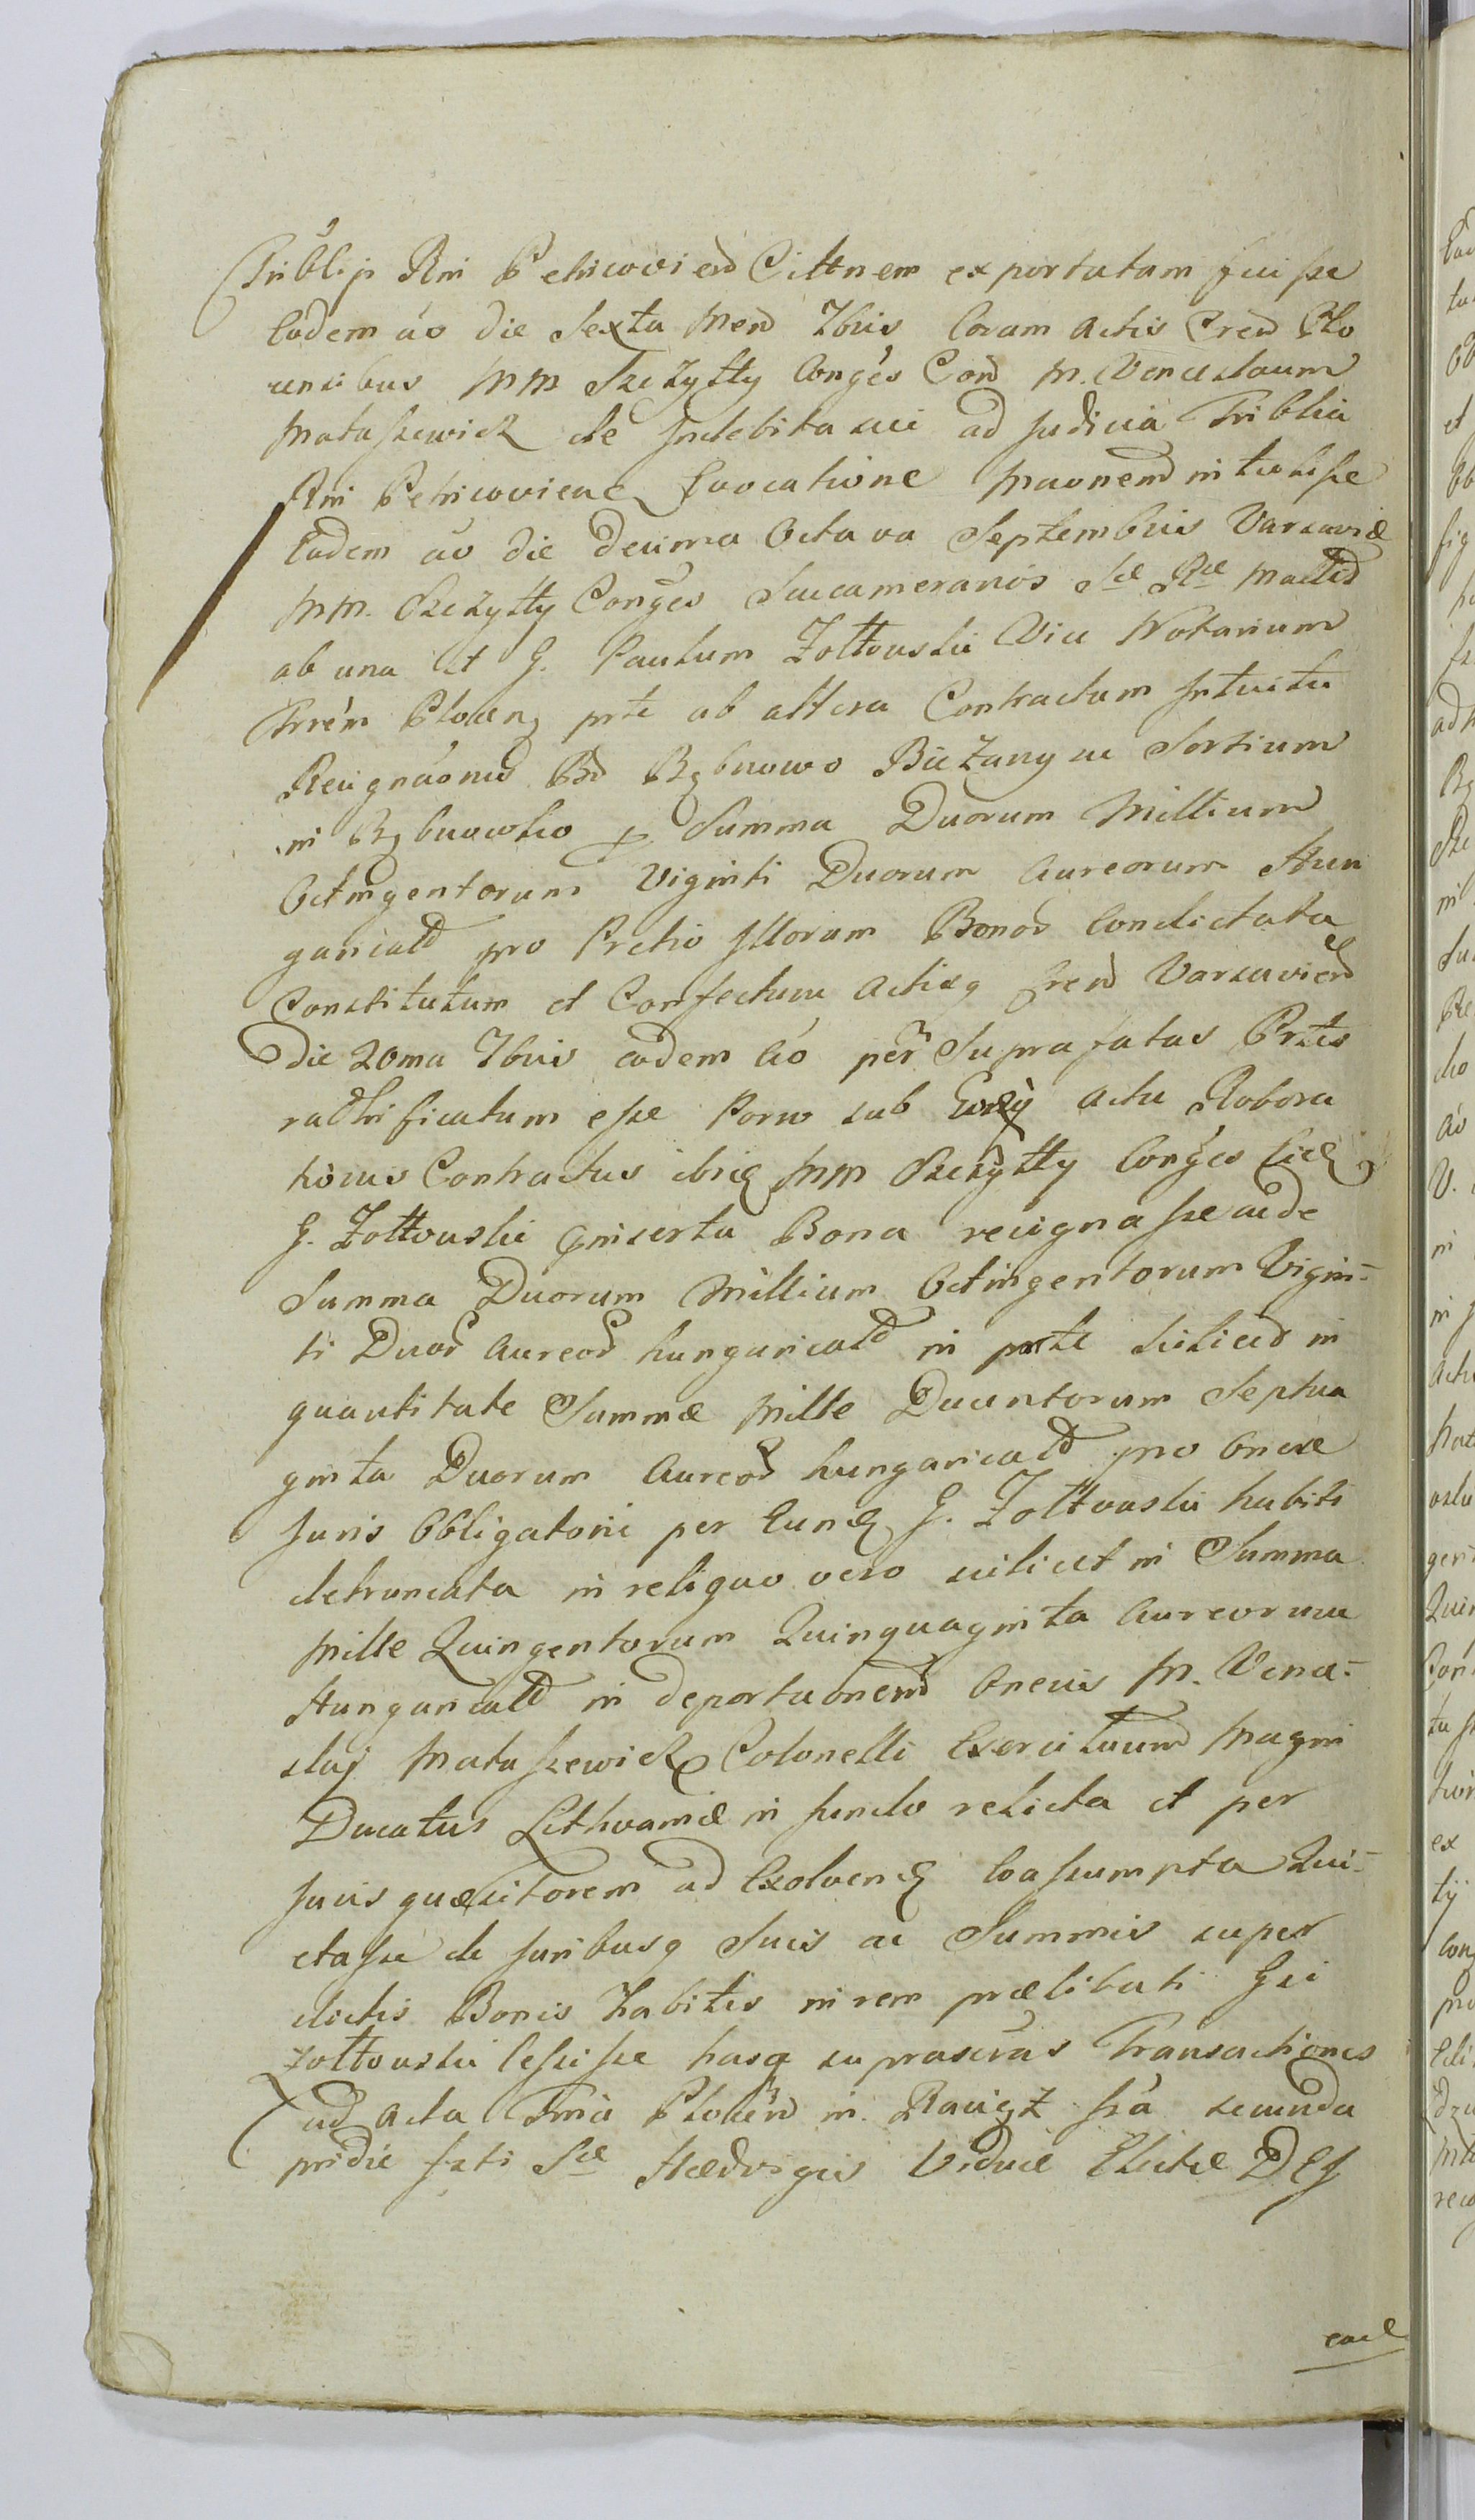 Triblis Rni Petricovien Cittnem exportatam fuisse
Eodem áo die Sexta Mens 7bris Coram Actis Tren Plo
censibus MM Szczytty Conges Con M. Venceslaum
Mataszewicz de Indebita sui ad Judicia Triblia
Rni Petricovien Evocatione Maonem intulisse
Eodem áo die Decima Octava Septembris Varsaviæ
MM. Szczytty Conges Succameranos Sæ Ræ Mattis
ab una et G. Paulum Zołtowski Vice Notarium
Trrem Plocen prte ab altera Contractum Intuitu
Resignáonis Bd Rębowo Bieżany ac Sortium
in Rębowko p Summa Duorum Millium
Octingentorum Viginti Duorum Aureorum Hun
garicald pro Pretio Illorum Bonor Condictata
Constitutum et Confectum Actisq Tren Varsavien
Die 20ma 7bris eodem áo per Suprafatas Prtes
rathificatum esse Porro sub actu Robora
tionis Contractus MM Szczytty Conges
G. Zołtowski inserta Bona resignasse ac de
Summa Duorum Millium Octingentorum Vigin-
ti Duor Aureor hungaricald in parte scilicet in
quantitate Summæ Mille Ducentorum Septua
ginta Duorum Aureor hungaricald pro Onere
Juris Obligatorii per Eund G. Zołtowski habiti
detruncata in reliquo vero scilicet in Summa
Mille Quingentorum Quinquaginta Aureorum
Hungaricald in deportaonem Oneris M. Vence-
slaj Mataszewicz Colonelli Exercituum Magni
Ducatus Lithvaniæ in fundo relicta et per
Juris quæsitorem ad Exolvend Coassumpta Qui-
etasse de Juribusq Suis ac Summis super
dictis Bonis habitis in rem prælibati Gsi
Zołtowski Cessisse hasq suprascras Transactiones
ad Acta Trria Plocen in Raciąż fra secunda
pridie fsti Sæ Hædvigis Viduæ Electæ DEJ